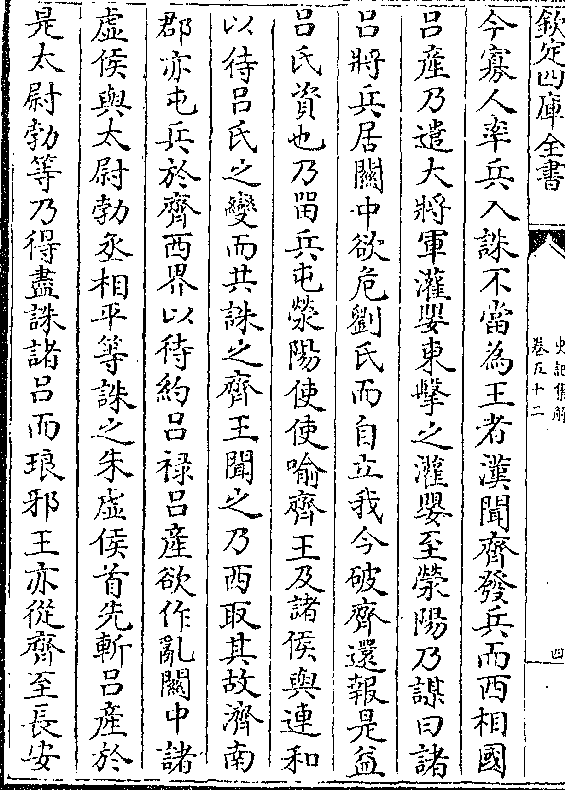 欽定四庫全書
史記集解
卷五十二
四
今寡人率兵入誅不當為王者漢聞齊發兵而西相國
呂產乃遣大將軍灌嬰東擊之灌嬰至滎陽乃謀曰諸
呂將兵居關中欲危劉氏而自立我今破齊還報是益
呂氏資也乃畱兵屯滎陽使使喻齊王及諸侯與連和
以待呂氏之變而共誅之齊王聞之乃西取其故濟南
郡亦屯兵於齊西界以待約呂祿呂產欲作亂關中諸
虛侯與太尉勃丞相平等誅之朱虛侯首先斬呂產於
是太尉勃等乃得盡誅諸呂而琅邪王亦從齊至長安